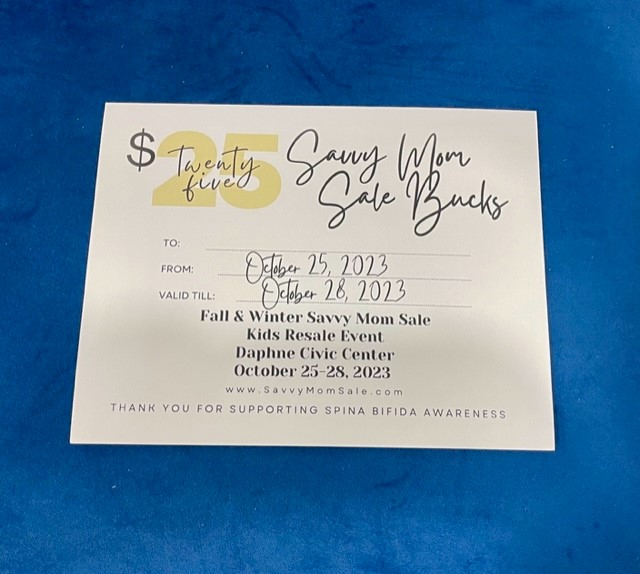 $25 Twenty five
Savvy Mom
Sale Bucks
TO:
FROM: October 25, 2023
VALID TILL: October 28, 2023
Fall & Winter Savvy Mom Sale
Kids Resale Event
Daphne Civic Center
October 25-28, 2023
www.SavvyMomSale.com
THANK YOU FOR SUPPORTING SPINA BIFIDA AWARENESS